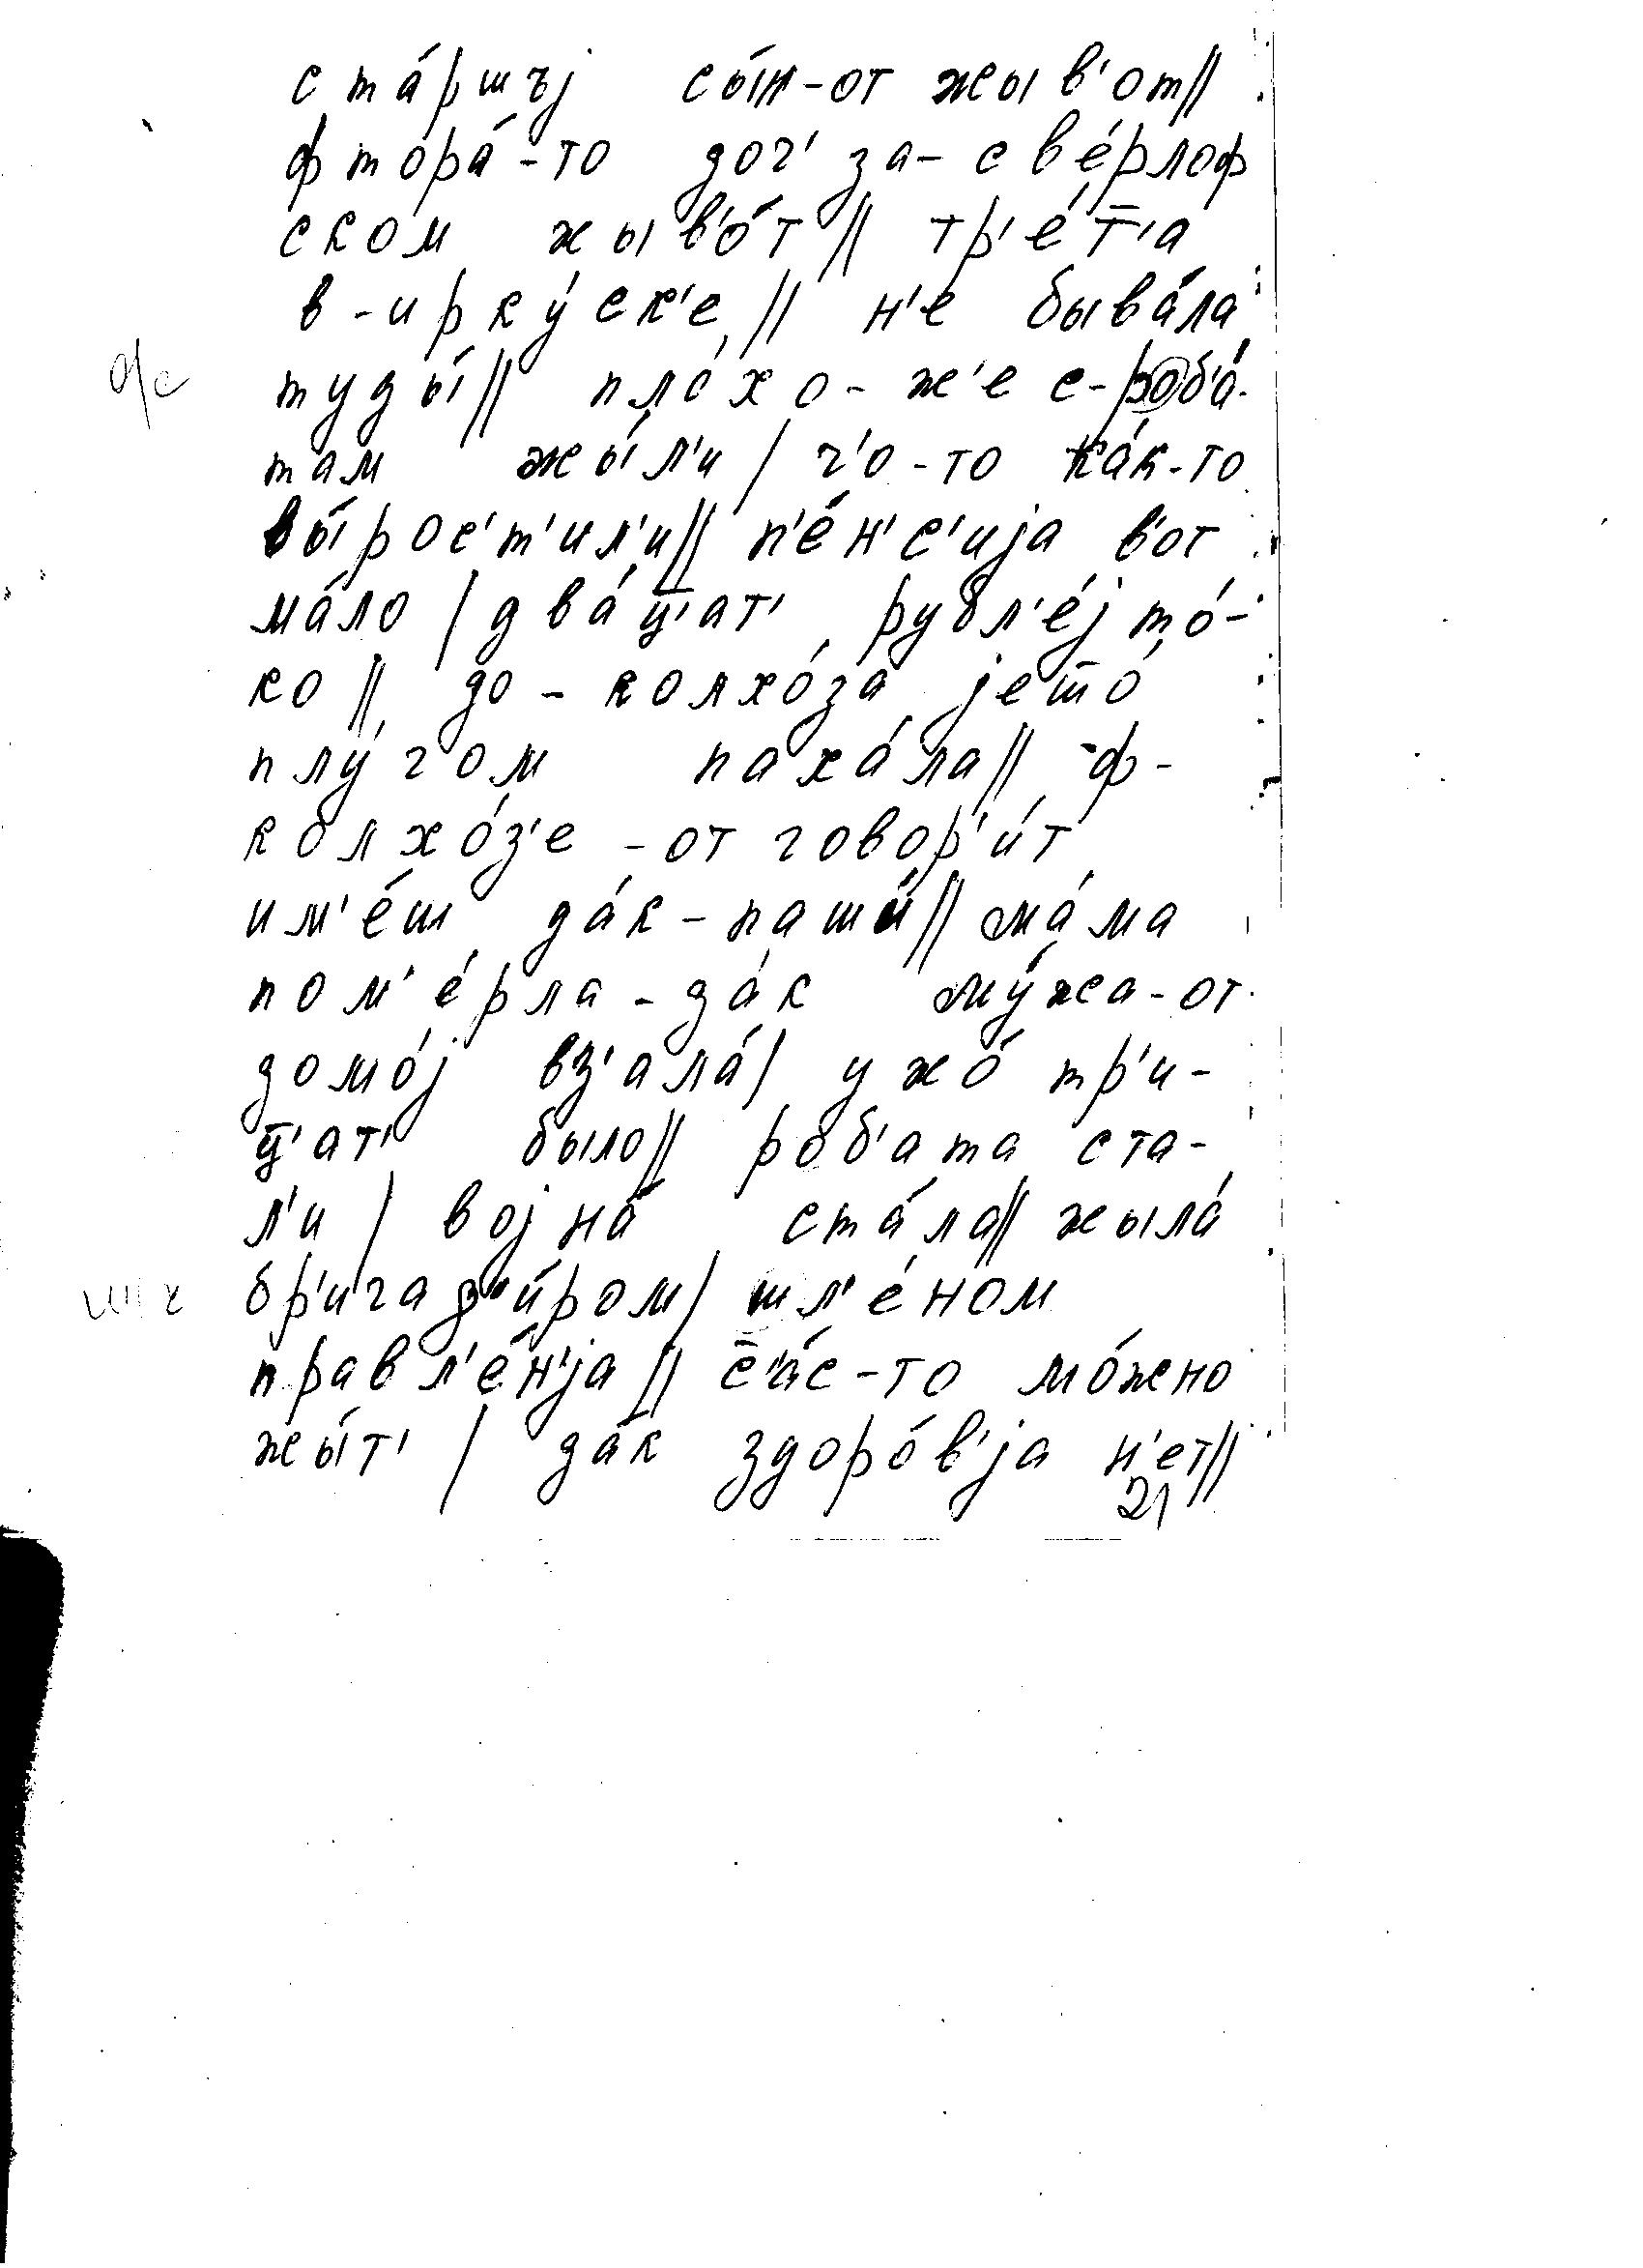 ста́ршъj сы́н-от жыв'от//
фтора́-то доч' за-све́рлоф
ском жыв'о́т// тр'е́т̅'а
в-ирку́ск'е// н'е быва́ла
туды́// пло́хо-ж'е с-роб'а́-
там жы́л'и/ ч'о-то ка́к-то
вы́рос'т'ил'и// п'е́н'с'иjа вот
ма́ло/ два́ц̅'ат' рубл'е́j то́-
ко// до-колхо́за jет̅о́
плу́гом паха́ла// ф-
колхо́з'е-от говор'и́т
им'е́ш да́к-паши́// ма́ма
пом'е́рла-да́к му́жа-от
домо́j вз'ала́/ ужо́ тр'и-
ц̅'ат' было// роб'ата ста-
л'и/ воjна́ ста́ла// жыла́
бр'игад'и́ром/ шл'е́ном
правл'е́н'jа// с̅'а́с-то мо́жно
жы́т'/ да́к здоро́в'jа н'ет//
21